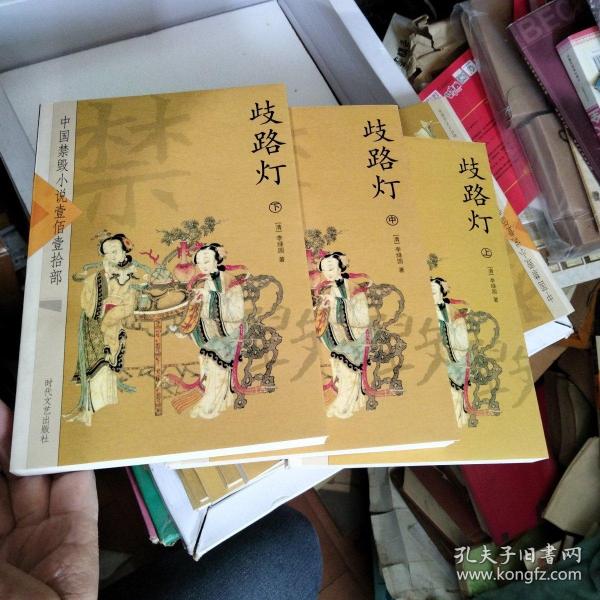 中国禁毁小说壹佰壹拾部
禁
歧路灯
下
[清]李绿园 著
时代文艺出版社
歧路灯
中
[清]李绿园 著
歧路灯
上
[清]李绿园 著
孔夫子旧书网
www.kongfz.com